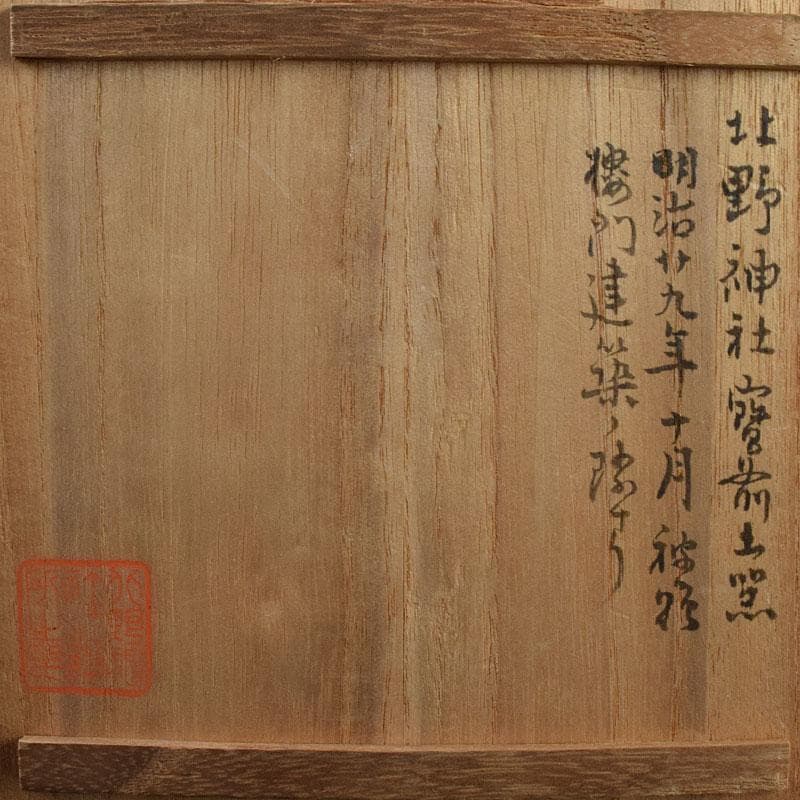 北野神社寶前土器
明治廿九年十月被
樓門建築ノ際ナリ